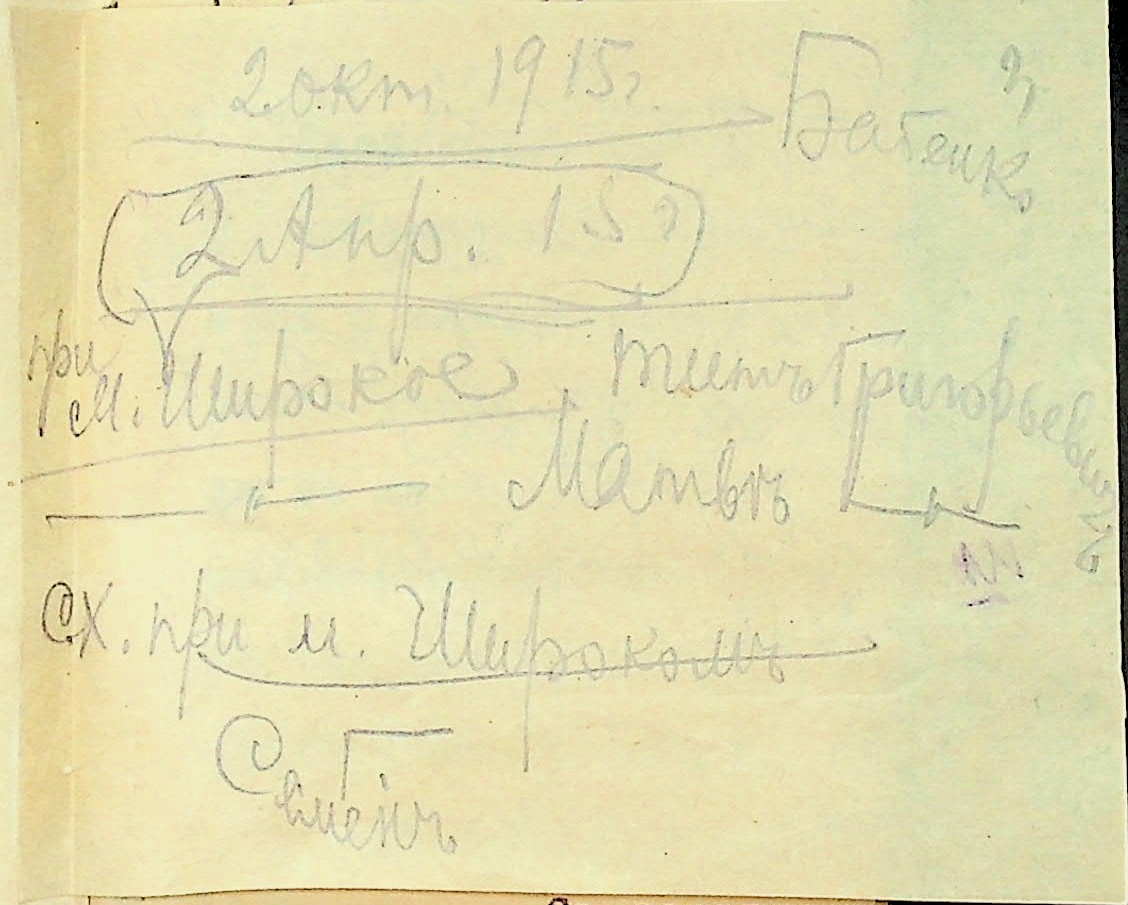 2 окт. 1915 г.
Батенко
2 Апр. 15 г
при м. Широкое Титъ Григорьевичъ
— " — Матвѣ — " —
Сх. при м. Широкомъ
Семенъ